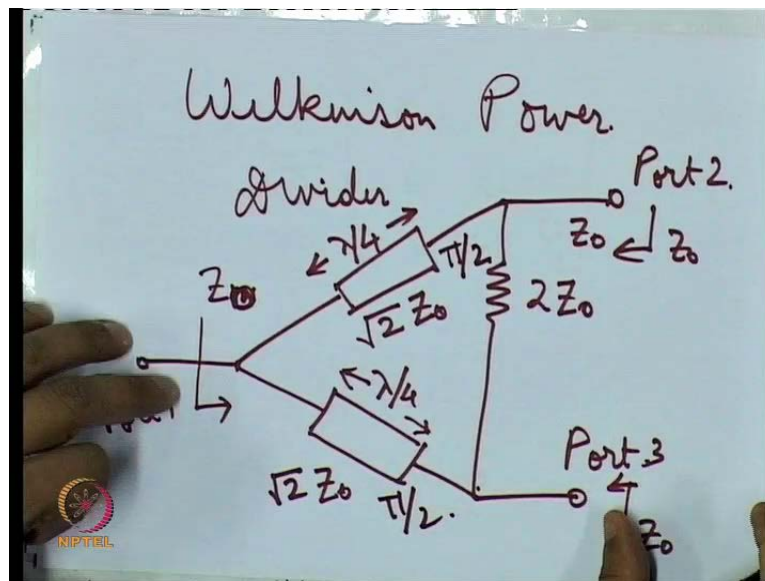 Wilkinison Power.
Divider
Port 2.
λ/4
π/2
Z₀
Z₀
Z₀
√2 Z₀
2Z₀
λ/4
Port 3
√2 Z₀
π/2.
Z₀
NPTEL